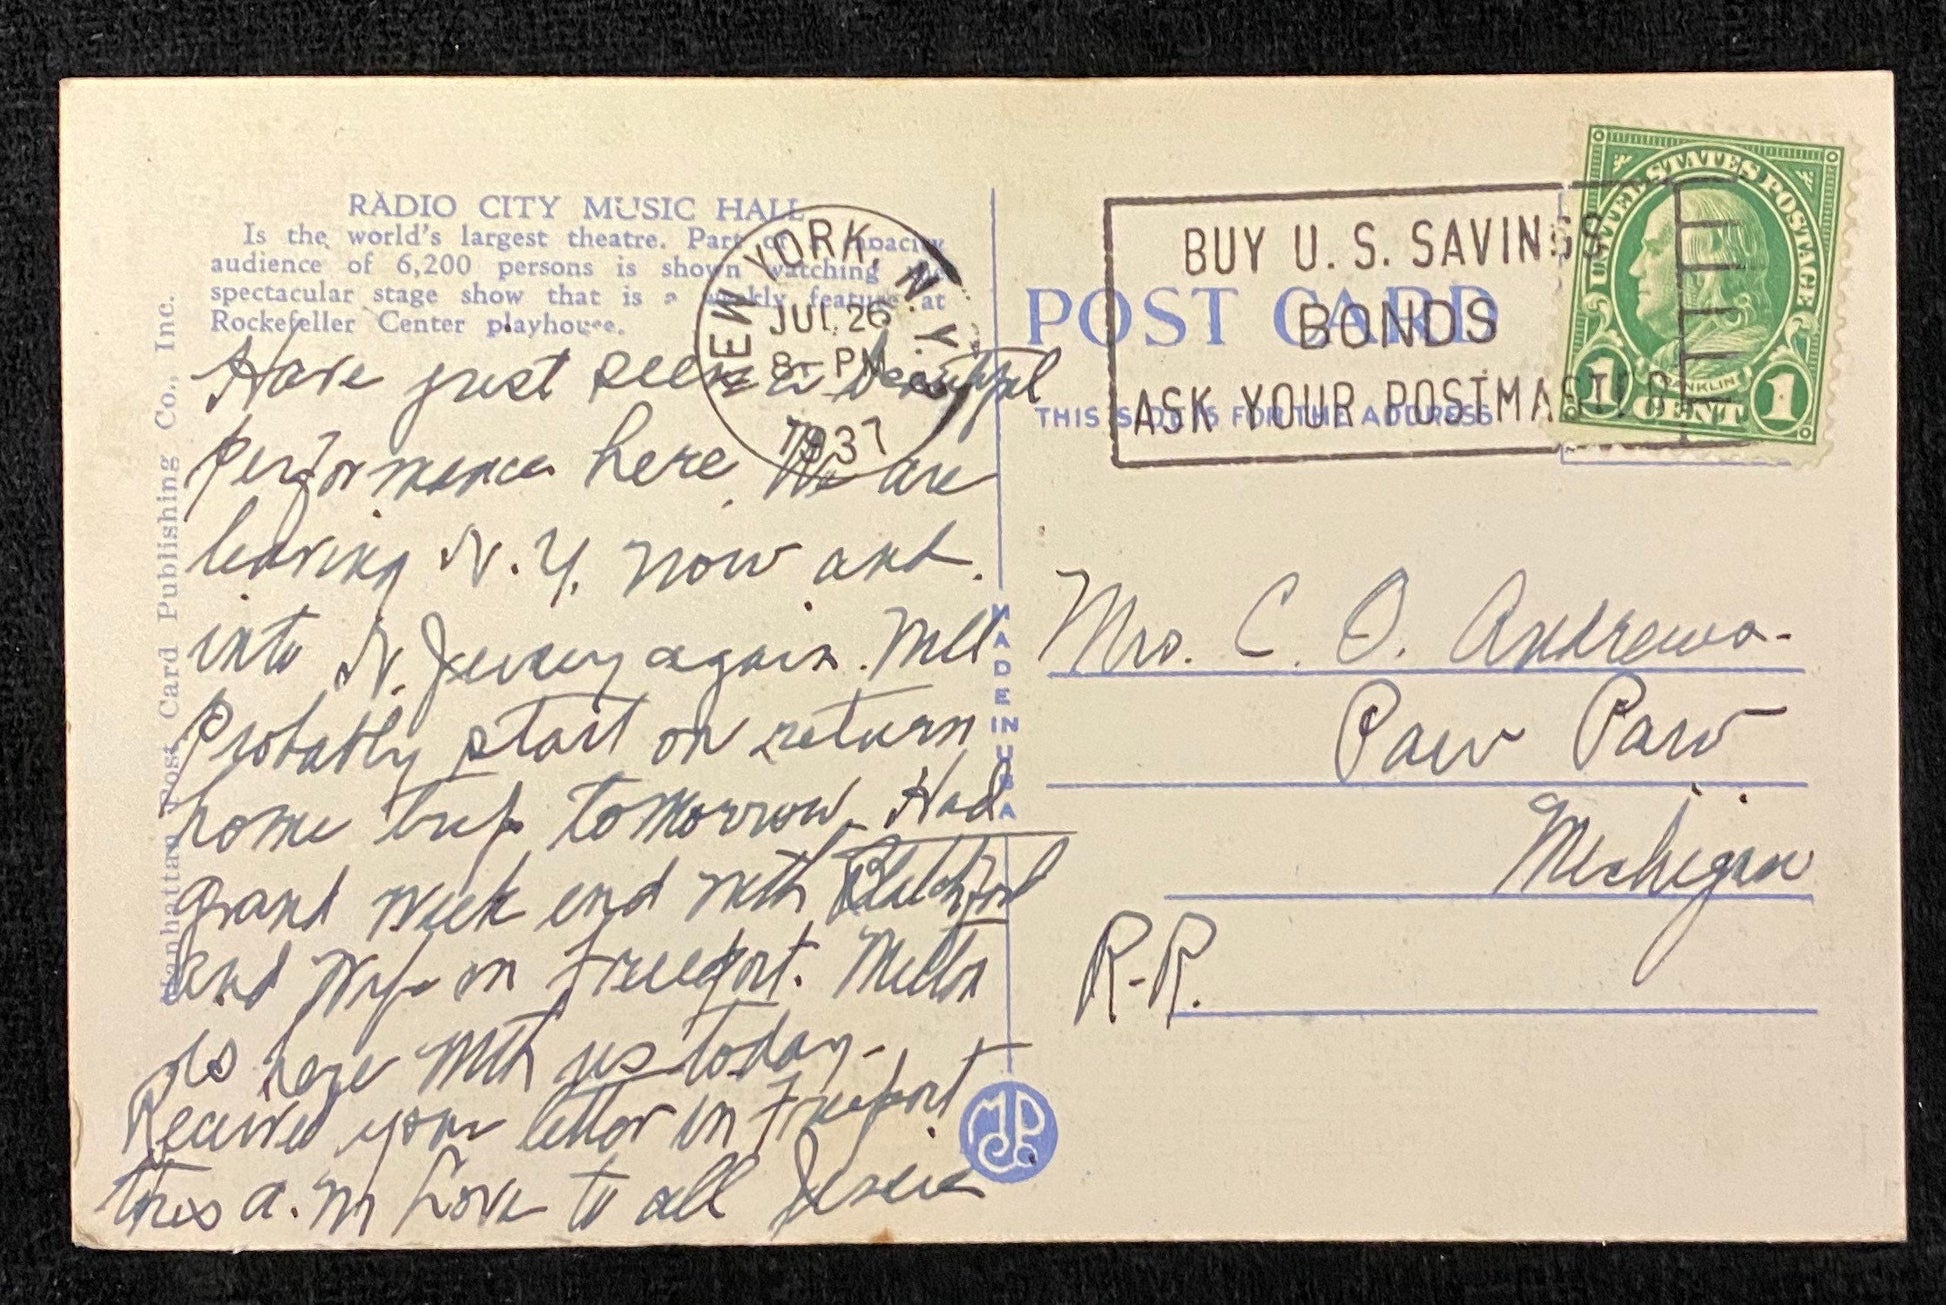 RADIO CITY MUSIC HALL
Is the world's largest theatre. Part of a capacity
audience of 6,200 persons is shown watching the
spectacular stage show that is a weekly feature at
Rockefeller Center playhouse.
Manhattan Post Card Publishing Co., Inc.
Have just seen a beautiful
performance here. We are
leaving N. Y. now and
into N. Jersey again. Will
Probably start on return
home trip tomorrow. Had
grand week end with Blatchford
and Wife in Freeport. Milton
is here with us today-
Received your letter in Freeport
this a.m Love to all Jessie
MADE IN U.S.A
NEW YORK, N.Y.
JUL 26
8- PM
1937
BUY U.S. SAVINGS
BONDS
ASK YOUR POSTMASTER
POST CARD
THIS SIDE IS FOR THE ADDRESS
UNITED STATES POSTAGE
FRANKLIN
1 CENT 1
Mrs. C. O. Andrews-
Paw Paw
Michigan
R-R.